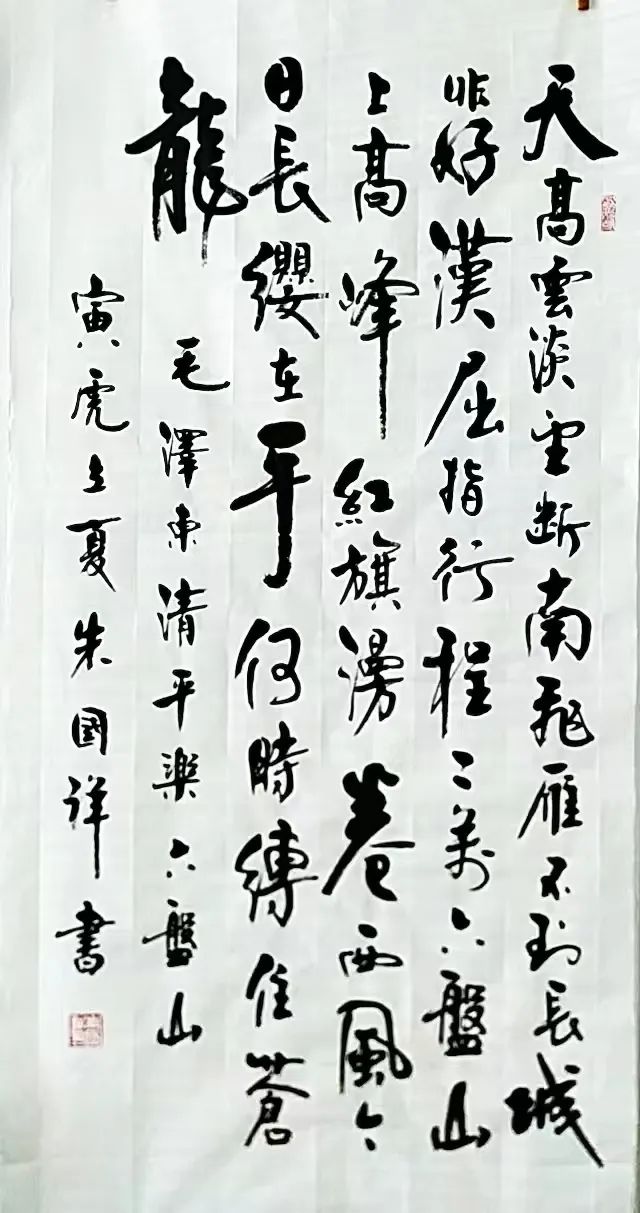 天高雲淡望斷南飛雁不到長城
非好漢屈指行程二萬六盤山
上高峰紅旗漫卷西風今
日長纓在手何時縛住蒼
龍
毛澤東清平樂六盤山
寅虎立夏朱國祥書